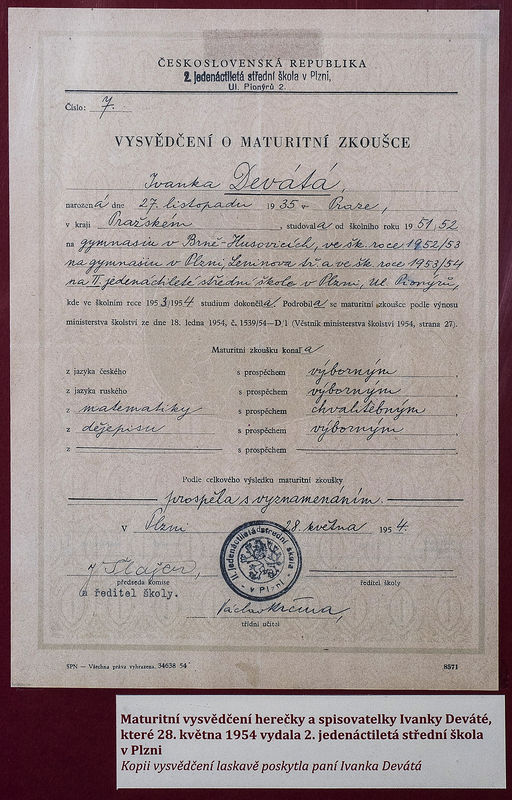 ČESKOSLOVENSKÁ REPUBLIKA
2. jedenáctiletá střední škola v Plzni,
Ul. Pionýrů 2.
Číslo: 7.
VYSVĚDČENÍ O MATURITNÍ ZKOUŠCE
Ivanka Devátá,
narozená dne 27. listopadu 1935 v Praze,
v kraji Pražském, studovala od školního roku 1951/52
na gymnasiu v Brně-Husovicích, ve šk. roce 1952/53
na gymnasiu v Plzni, Leninova tř. a ve šk. roce 1953/54
na II. jedenáctileté střední škole v Plzni, ul. Pionýrů,
kde ve školním roce 1953/1954 studium dokončila. Podrobila se maturitní zkoušce podle výnosu
ministerstva školství ze dne 18. ledna 1954, č. 1539/54-D/1 (Věstník ministerstva školství 1954, strana 27).
Maturitní zkoušku konala
z jazyka českého s prospěchem výborným
z jazyka ruského s prospěchem výborným
z matematiky s prospěchem chvalitebným
z dějepisu s prospěchem výborným
z s prospěchem
Podle celkového výsledku maturitní zkoušky
prospěla s vyznamenáním.
V Plzni 28. května 1954.
II. jedenáctiletá střední škola
v Plzni
předseda komise
a ředitel školy.
ředitel školy
Václav Krčma,
třídní učitel
SPN — Všechna práva vyhrazena. 34638 54
8571
Maturitní vysvědčení herečky a spisovatelky Ivanky Deváté,
které 28. května 1954 vydala 2. jedenáctiletá střední škola
v Plzni
Kopii vysvědčení laskavě poskytla paní Ivanka Devátá